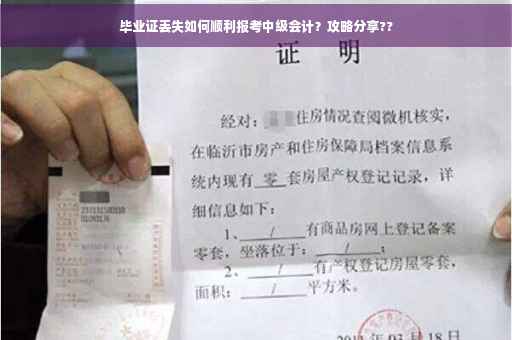 毕业证丢失如何顺利报考中级会计？攻略分享??
证 明
经对：住房情况查阅微机核实，
在临沂市房产和住房保障局档案信息系
统内现有 零 套房屋产权登记记录，详
细信息如下：
1、 / 有商品房网上登记备案
零套，坐落位于： / ；
2、 / 有产权登记房屋零套，
面积： / 平方米。
03月18日